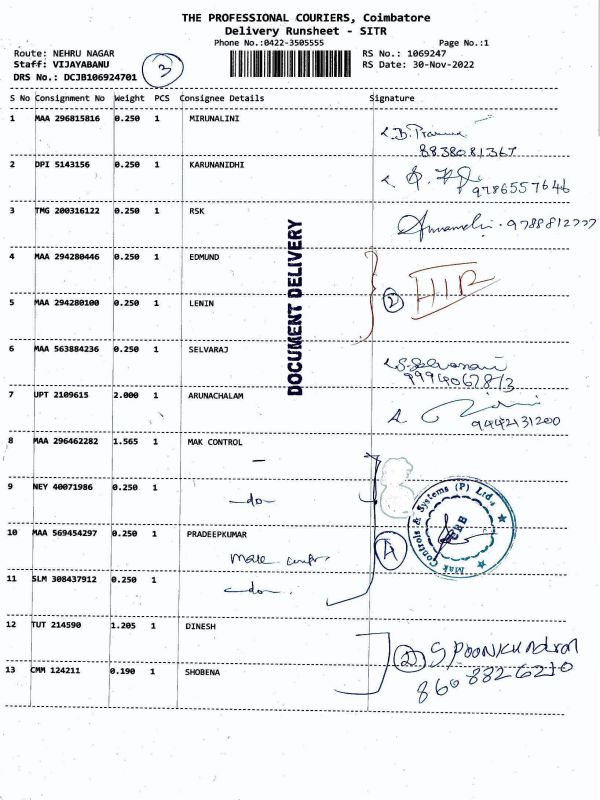 THE PROFESSIONAL COURIERS, Coimbatore
Delivery Runsheet - SITR
Phone No.:0422-3505555 Page No.:1
Route: NEHRU NAGAR RS No.: 1069247
Staff: VIJAYABANU RS Date: 30-Nov-2022
DRS No.: DCJB106924701
3
S No Consignment No Weight PCS Consignee Details Signature
1 MAA 296815816 0.250 1 MIRUNALINI
8838081367
2 DPI 5143156 0.250 1 KARUNANIDHI
9786557646
3 TMG 200316122 0.250 1 RSK
DOCUMENT DELIVERY
4 MAA 294280446 0.250 1 EDMUND
2
5 MAA 294280100 0.250 1 LENIN
6 MAA 563884236 0.250 1 SELVARAJ
7 UPT 2109615 2.000 1 ARUNACHALAM
9442131200
8 MAA 296462282 1.565 1 MAK CONTROL
9 NEY 40071986 0.250 1
-do-
10 MAA 569454297 0.250 1 PRADEEPKUMAR
4
Mak Controls & Systems (P) Ltd.,
11 SLM 308437912 0.250 1
-do-
12 TUT 214590 1.205 1 DINESH
2
13 CMM 124211 0.190 1 SHOBENA
8608826210